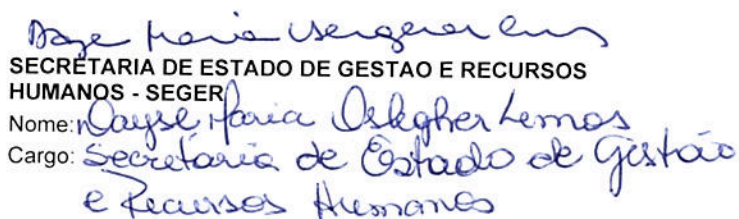 SECRETARIA DE ESTADO DE GESTAO E RECURSOS
HUMANOS - SEGER
Nome: Dayse Maria Oslegher Lemos
Cargo: Secretaria de Estado de Gestão
e Recursos Humanos